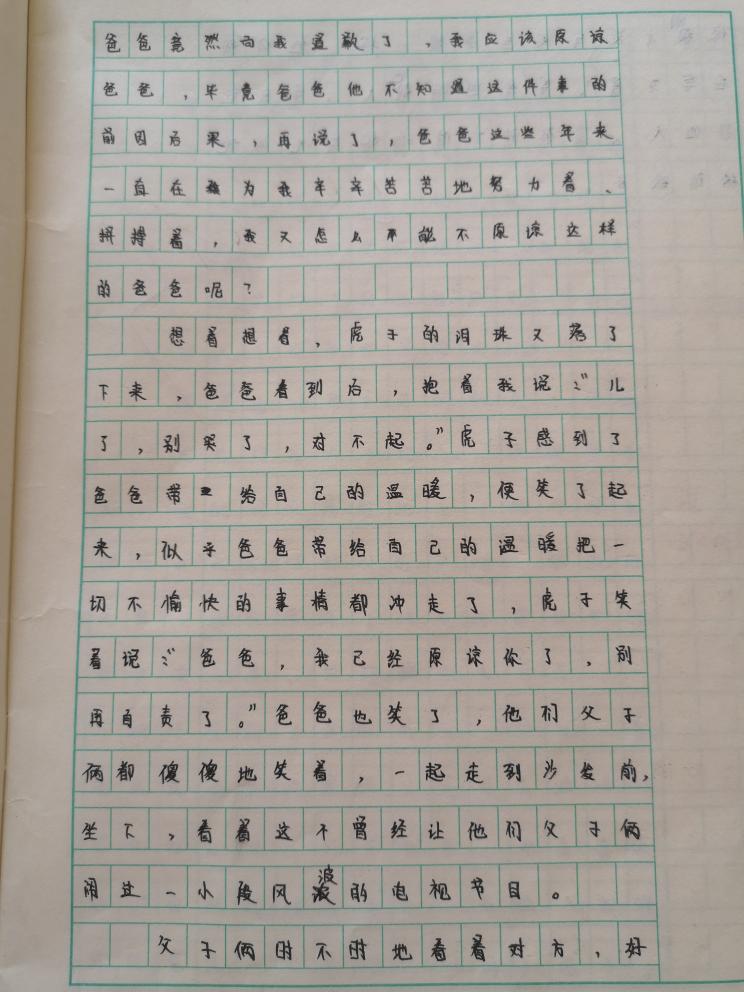 爸爸竟然向我道歉了，我应该原谅
爸爸，毕竟爸爸他不知道这件事的
前因后果，再说了，爸爸这些年来
一直在为我辛辛苦苦地努力着、
拼搏着，我又怎么不能不原谅这样
的爸爸呢？
想着想着，虎子的泪珠又落了
下来，爸爸看到后，抱着我说：“儿
了，别哭了，对不起。”虎子感到了
爸爸带给自己的温暖，便笑了起
来，似乎爸爸带给自己的温暖把一
切不愉快的事情都冲走了，虎子笑
着说：“爸爸，我已经原谅你了，别
再自责了。”爸爸也笑了，他们父子
俩都傻傻地笑着，一起走到沙发前，
坐下，看着这不曾经让他们父子俩
闹过一小段风波的电视节目。
父子俩时不时地看着对方，好